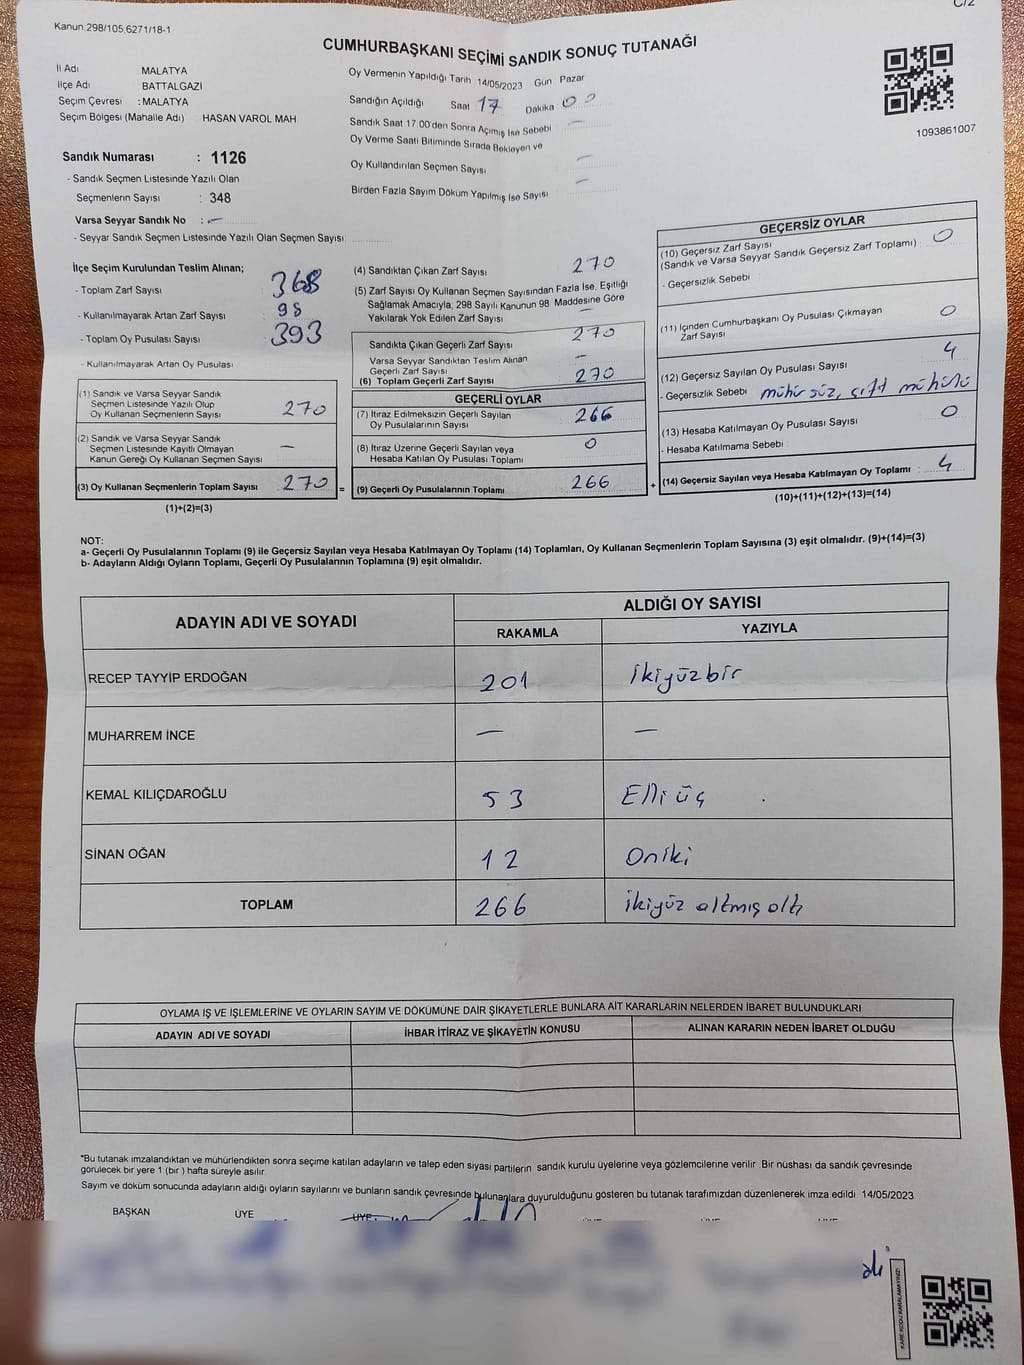 Kanun.298/105,6271/18-1
C/2
CUMHURBAŞKANI SEÇİMİ SANDIK SONUÇ TUTANAĞI
İl Adı MALATYA
İlçe Adı BATTALGAZI
Seçim Çevresi : MALATYA
Seçim Bölgesi (Mahalle Adı) HASAN VAROL MAH
Oy Vermenin Yapıldığı Tarih 14/05/2023 Gün Pazar
Sandığın Açıldığı Saat 17 Dakika 00
Sandık Saat 17 00'den Sonra Açımış İse Sebebi —
Oy Verme Saati Bitiminde Sırada Bekleyen ve
Oy Kullandırılan Seçmen Sayısı —
Birden Fazla Sayım Döküm Yapılmış İse Sayısı —
1093861007
Sandık Numarası : 1126
- Sandık Seçmen Listesinde Yazılı Olan
Seçmenlerin Sayısı : 348
Varsa Seyyar Sandık No : —
- Seyyar Sandık Seçmen Listesinde Yazılı Olan Seçmen Sayısı
İlçe Seçim Kurulundan Teslim Alınan;
- Toplam Zarf Sayısı 368
- Kullanılmayarak Artan Zarf Sayısı 98
- Toplam Oy Pusulası Sayısı 393
- Kullanılmayarak Artan Oy Pusulası
(1) Sandık ve Varsa Seyyar Sandık
Seçmen Listesinde Yazılı Olup
Oy Kullanan Seçmenlerin Sayısı 270
(2) Sandık ve Varsa Seyyar Sandık
Seçmen Listesinde Kayıtlı Olmayan
Kanun Gereği Oy Kullanan Seçmen Sayısı —
(3) Oy Kullanan Seçmenlerin Toplam Sayısı 270 =
(1)+(2)=(3)
(4) Sandıktan Çıkan Zarf Sayısı 270
(5) Zarf Sayısı Oy Kullanan Seçmen Sayısından Fazla İse, Eşitliği
Sağlamak Amacıyla, 298 Sayılı Kanunun 98 Maddesine Göre
Yakılarak Yok Edilen Zarf Sayısı —
Sandıkta Çıkan Geçerli Zarf Sayısı 270
Varsa Seyyar Sandıktan Teslim Alınan
Geçerli Zarf Sayısı —
(6) Toplam Geçerli Zarf Sayısı 270
GEÇERLİ OYLAR
(7) İtiraz Edilmeksizin Geçerli Sayılan
Oy Pusulalarının Sayısı 266
(8) İtiraz Üzerine Geçerli Sayılan veya
Hesaba Katılan Oy Pusulası Toplamı 0
(9) Geçerli Oy Pusulalarının Toplamı 266 +
GEÇERSİZ OYLAR
(10) Geçersiz Zarf Sayısı
(Sandık ve Varsa Seyyar Sandık Geçersiz Zarf Toplamı) : 0
- Geçersizlik Sebebi :
(11) İçinden Cumhurbaşkanı Oy Pusulası Çıkmayan
Zarf Sayısı 0
(12) Geçersiz Sayılan Oy Pusulası Sayısı 4
- Geçersizlik Sebebi mühürsüz, çift mühürlü
(13) Hesaba Katılmayan Oy Pusulası Sayısı 0
- Hesaba Katılmama Sebebi
(14) Geçersiz Sayılan veya Hesaba Katılmayan Oy Toplamı : 4
(10)+(11)+(12)+(13)=(14)
NOT:
a- Geçerli Oy Pusulalarının Toplamı (9) ile Geçersiz Sayılan veya Hesaba Katılmayan Oy Toplamı (14) Toplamları, Oy Kullanan Seçmenlerin Toplam Sayısına (3) eşit olmalıdır. (9)+(14)=(3)
b- Adayların Aldığı Oyların Toplamı, Geçerli Oy Pusulalarının Toplamına (9) eşit olmalıdır.
ADAYIN ADI VE SOYADI ALDIĞI OY SAYISI
RAKAMLA YAZIYLA
RECEP TAYYİP ERDOĞAN 201 ikiyüzbir
MUHARREM İNCE — —
KEMAL KILIÇDAROĞLU 53 Elliüç
SİNAN OĞAN 12 Oniki
TOPLAM 266 ikiyüz altmış altı
OYLAMA İŞ VE İŞLEMLERİNE VE OYLARIN SAYIM VE DÖKÜMÜNE DAİR ŞİKAYETLERLE BUNLARA AİT KARARLARIN NELERDEN İBARET BULUNDUKLARI
ADAYIN ADI VE SOYADI İHBAR İTİRAZ VE ŞİKAYETİN KONUSU ALINAN KARARIN NEDEN İBARET OLDUĞU
*Bu tutanak imzalandıktan ve mühürlendikten sonra seçime katılan adayların ve talep eden siyasi partilerin sandık kurulu üyelerine veya gözlemcilerine verilir Bir nüshası da sandık çevresinde
görülecek bir yere 1 (bir ) hafta süreyle asılır.
Sayım ve döküm sonucunda adayların aldığı oyların sayılarını ve bunların sandık çevresinde bulunanlara duyurulduğunu gösteren bu tutanak tarafımızdan düzenlenerek imza edildi 14/05/2023
BAŞKAN ÜYE ÜYE
KARE KODU KARALAMAYINIZ!